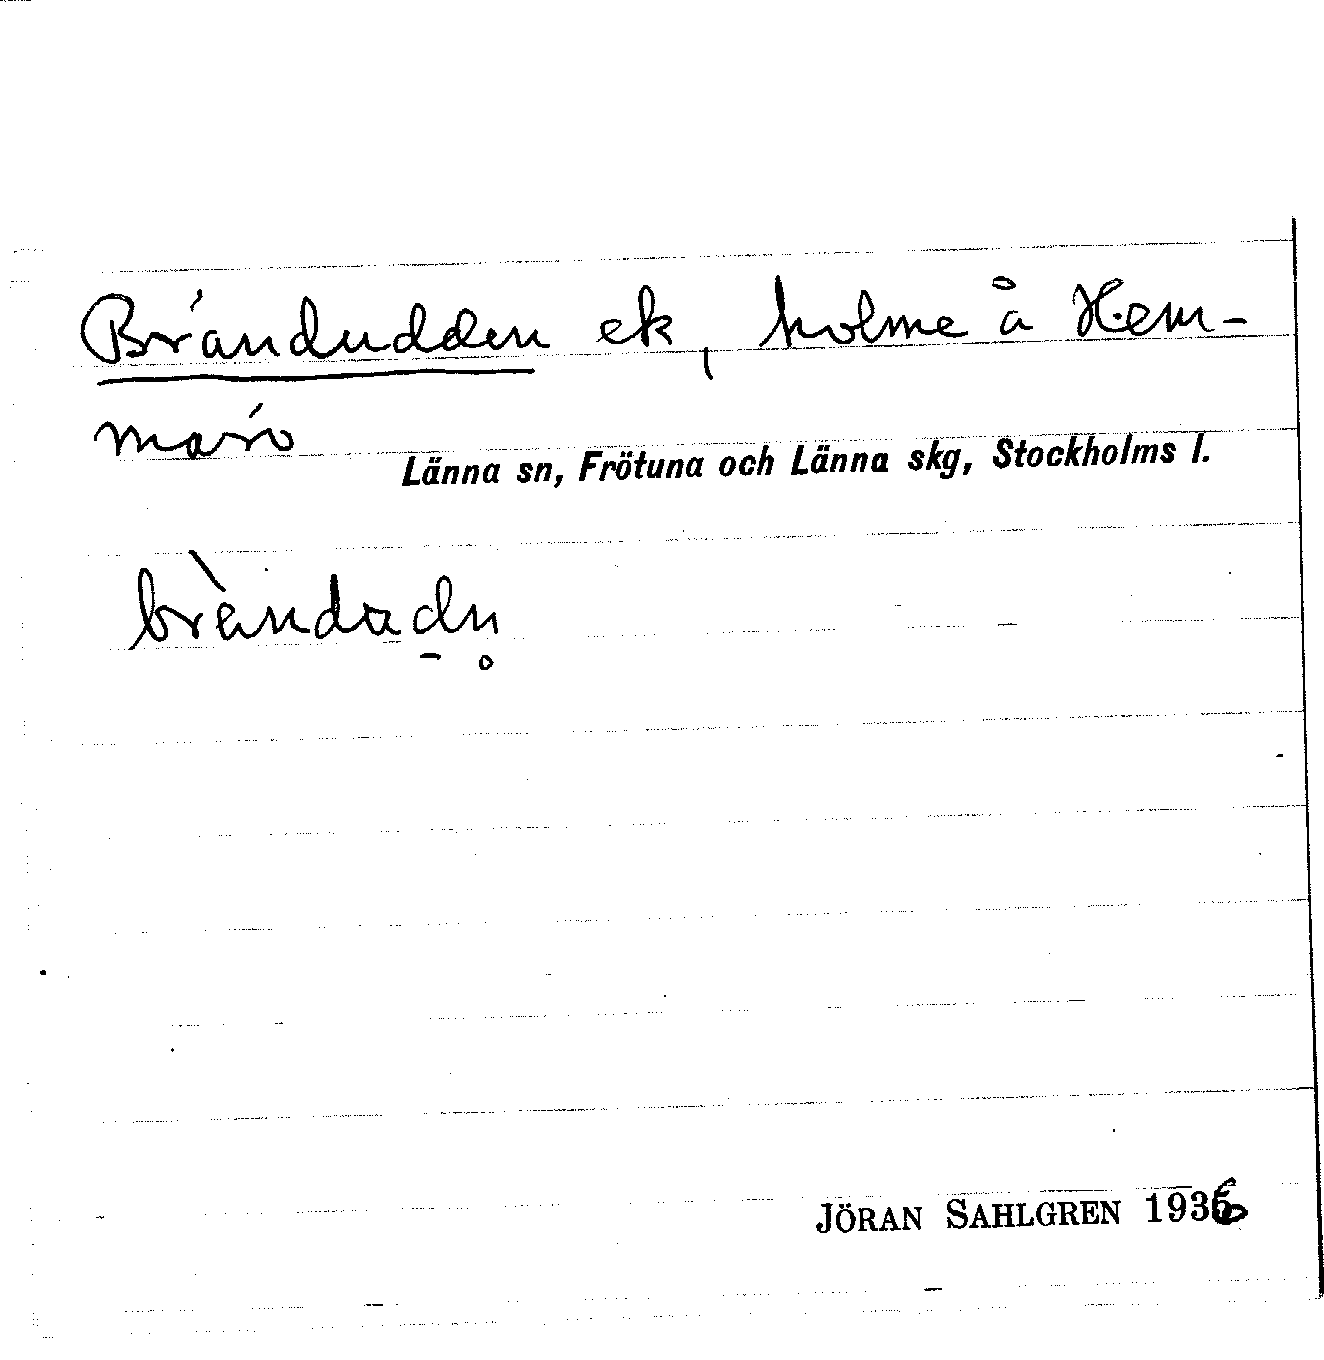 Brándudden ek, holme å Hem-
marö
Länna sn, Frötuna och Länna skg, Stockholms l.
brànda dn̥
JÖRAN SAHLGREN 1936